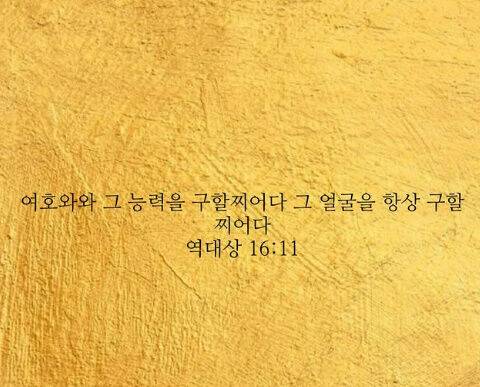 여호와와 그 능력을 구할찌어다 그 얼굴을 항상 구할
찌어다
역대상 16:11